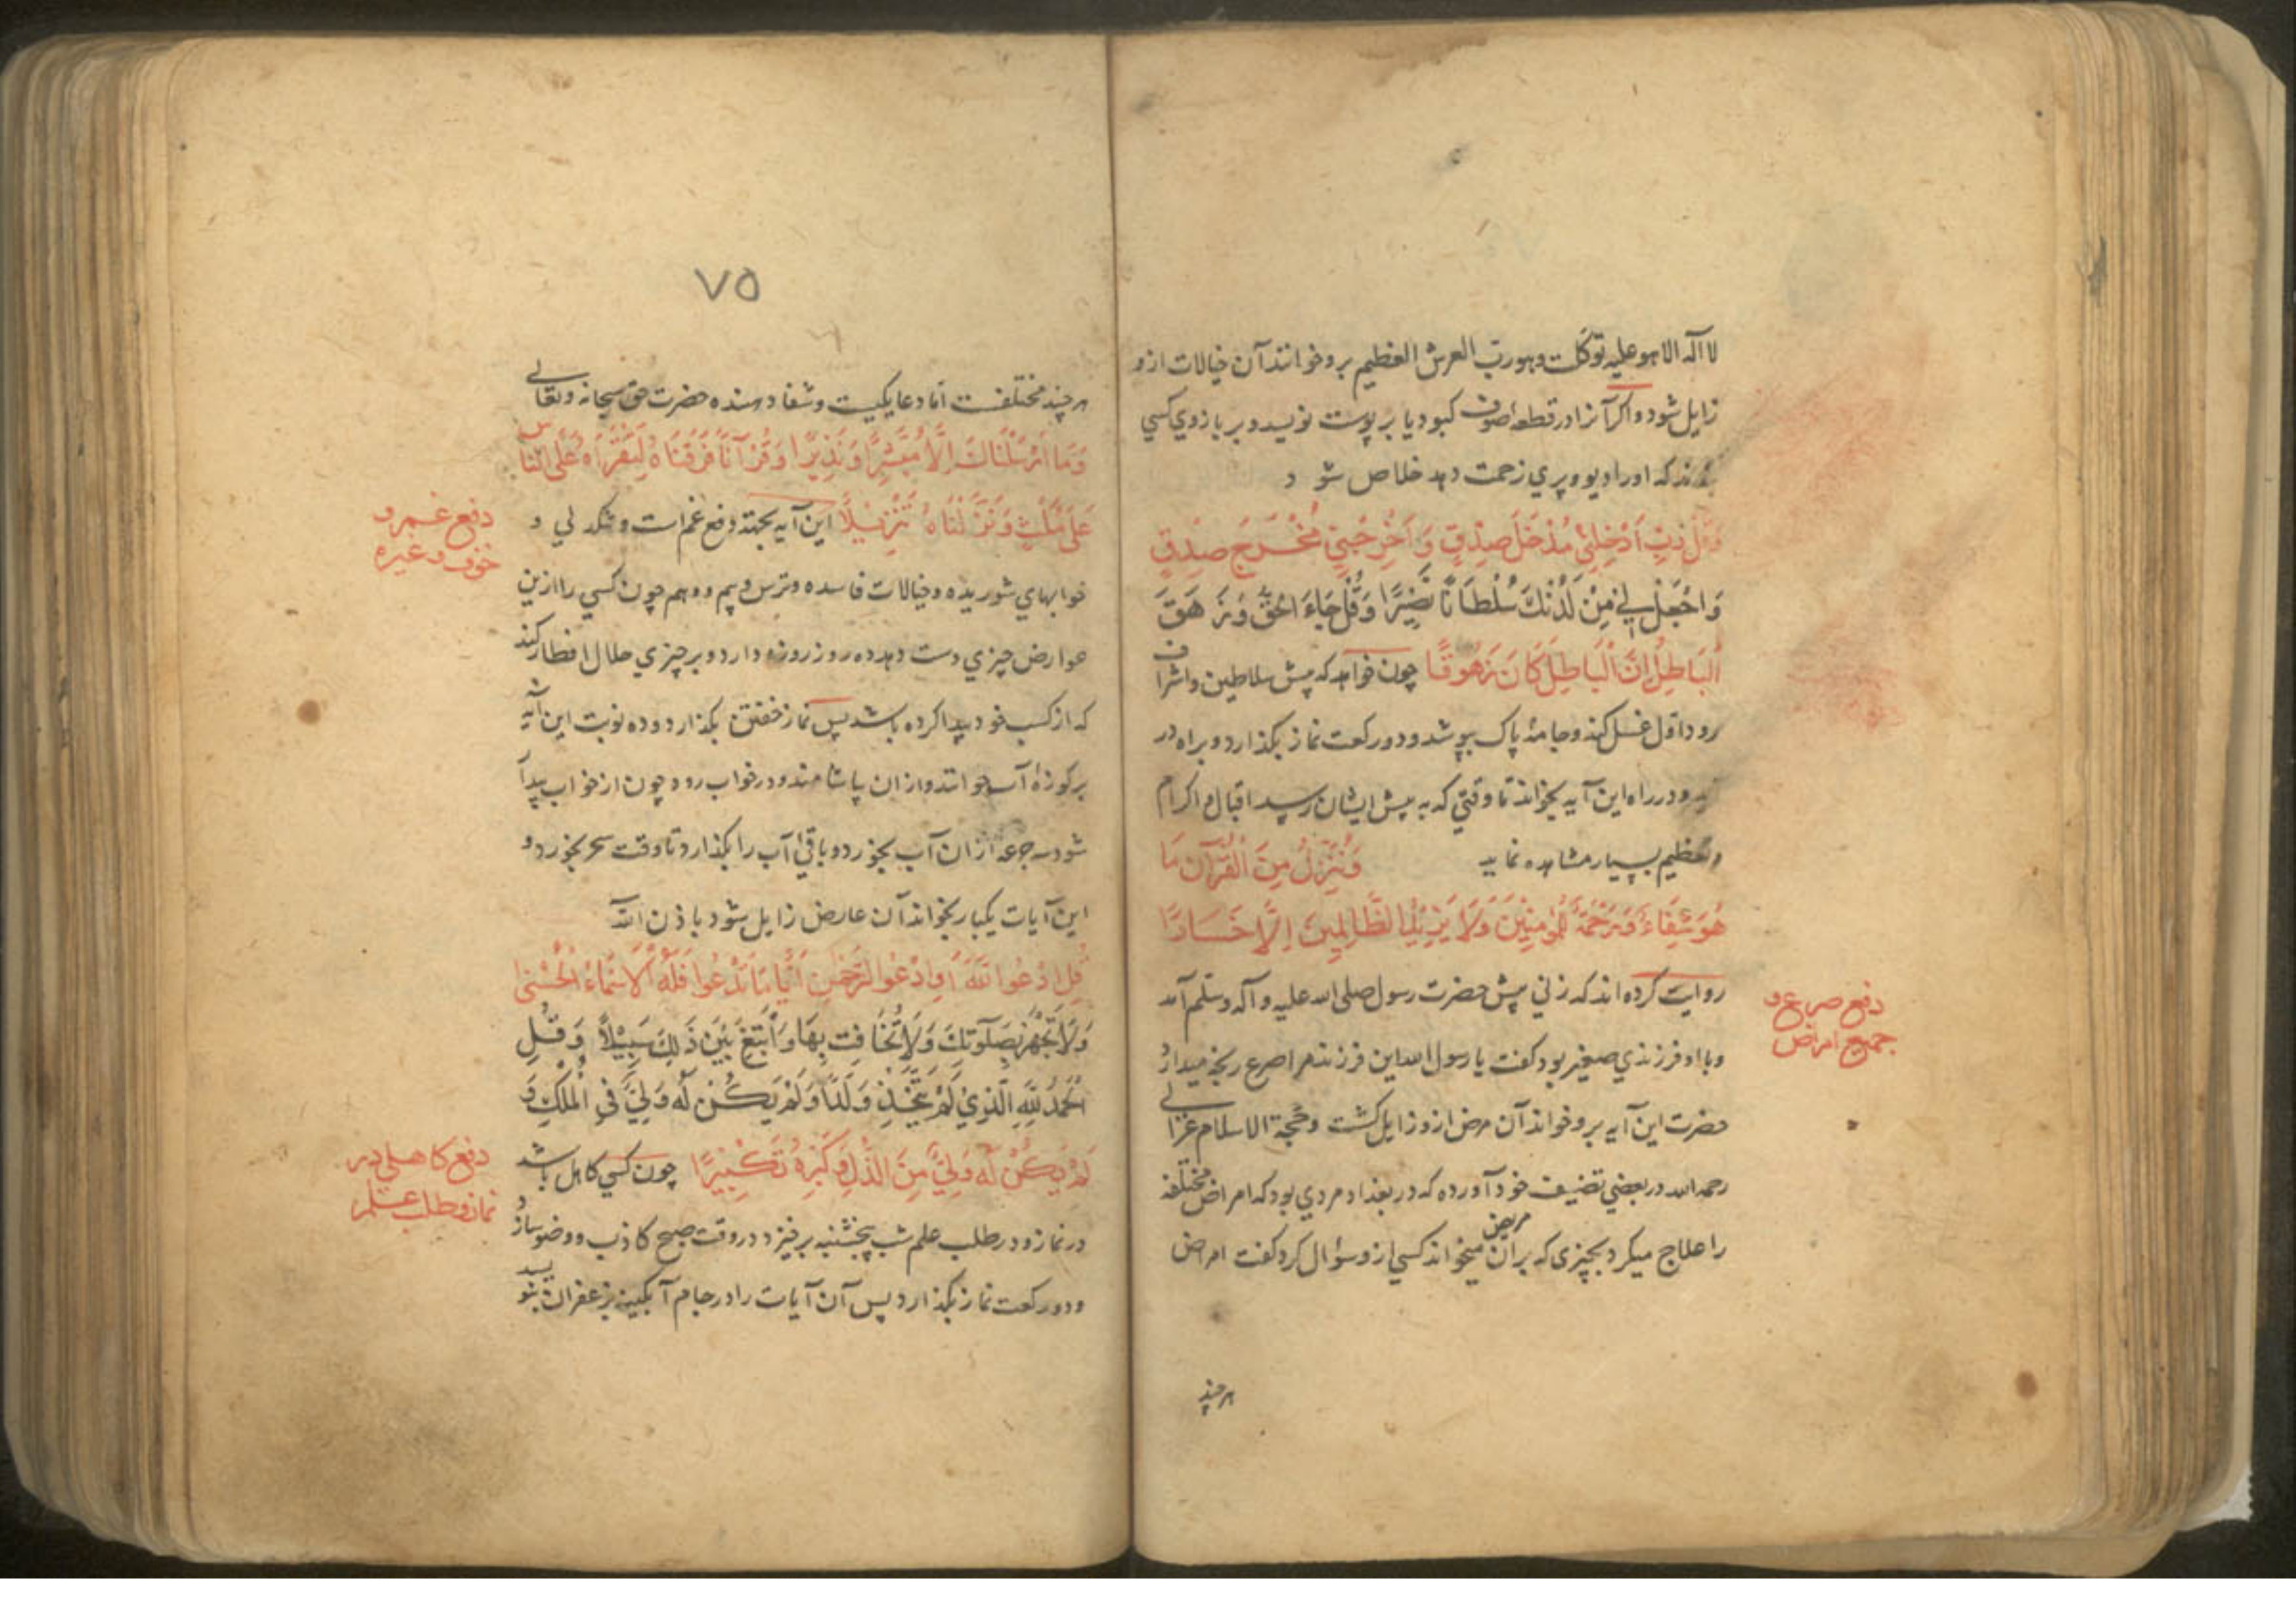 لا اله الا هو علیه توکلت و هو رب العرش العظیم برو خوانند آن خیالات ازو
زایل شود و اکر آنرا در قطعه صوف کبود یا بر پوست نویسد و بر بازوي کسي
بندند که اورا دیو و پري زحمت دهد خلاص شود
وَقُلْ رَبِّ أَدْخِلْنِي مُدْخَلَ صِدْقٍ وَأَخْرِجْنِي مُخْرَجَ صِدْقٍ
وَاجْعَلْ لِي مِنْ لَدُنْكَ سُلْطَانًا نَصِيرًا وَقُلْ جَاءَ الْحَقُّ وَزَهَقَ
الْبَاطِلُ إِنَّ الْبَاطِلَ كَانَ زَهُوقًا چون خواهد که پیش سلاطین و اشراف
رود اول غسل کند و جامهٔ پاک بپوشد و دو رکعت نماز بکذارد و براه در
و در راه این آیه بخواند تا وقتي که به پیش ایشان رسد اقبال و اکرام
و تعظیم بسیار مشاهده نماید وَنُنَزِّلُ مِنَ الْقُرْآنِ مَا
هُوَ شِفَاءٌ وَرَحْمَةٌ لِلْمُؤْمِنِينَ وَلَا يَزِيدُ الظَّالِمِينَ إِلَّا خَسَارًا
روایت کرده اند که زني پیش حضرت رسول صلی الله علیه و آله و سلم آمد
دفع صرع و
جمیع امراض
و با او فرزندي صغیر بود کفت یا رسول الله این فرزند مرا صرع رنجه میدارد
حضرت این آیه برو خواند آن مرض ازو زایل کشت و حجة الاسلام غزالي
رحمه الله در بعضي تصنیف خود آورده که در بغداد مردي بود که امراض مختلفه
را علاج میکرد بچیزی که بر آن مریض میخواند کسي ازو سؤال کرد کفت امراض
هرچند
٧٥
هرچند مختلفست اما دعا یکیست و شفا دهنده حضرت حق سبحانه و تعالی
وَمَا أَرْسَلْنَاكَ إِلَّا مُبَشِّرًا وَنَذِيرًا وَقُرْآنًا فَرَقْنَاهُ لِتَقْرَأَهُ عَلَى النَّاسِ
عَلَى مُكْثٍ وَنَزَّلْنَاهُ تَنْزِيلًا این آیه بجهة دفع غم است و تنکدلي و
دفع غم و
خوف و غیره
خوابهاي شوریده و خیالات فاسده و ترس و بیم و وهم چون کسي را ازین
عوارض چیزي دست دهد ده روز روزه دارد و بر چیزي حلال افطار کند
که از کسب خود پیدا کرده باشد پس نماز خفتن بکذارد و ده نوبت این آیه
بر کوزهٔ آب خوانند و از ان بیاشامند و در خواب رود چون از خواب بیدار
شود سه جرعه از ان آب بخورد و باقي آب را بکذارد تا وقت سحر بخورد و
این آیات یکبار بخواند آن عارض زایل شود باذن الله
قُلِ ادْعُوا اللَّهَ أَوِ ادْعُوا الرَّحْمٰنَ أَيًّا مَا تَدْعُوا فَلَهُ الْأَسْمَاءُ الْحُسْنَى
وَلَا تَجْهَرْ بِصَلَوتِكَ وَلَا تُخَافِتْ بِهَا وَابْتَغِ بَيْنَ ذَلِكَ سَبِيلًا وَقُلِ
الْحَمْدُ لِلَّهِ الَّذِي لَمْ يَتَّخِذْ وَلَدًا وَلَمْ يَكُنْ لَهُ وَلِيٌّ فِي الْمُلْكِ وَ
لَمْ يَكُنْ لَهُ وَلِيٌّ مِنَ الذُّلِّ وَكَبِّرْهُ تَكْبِيرًا چون کسي کاهل باشد
دفع کاهلي در
نماز و طلب علم
در نماز و در طلب علم شب پنجشنبه برخیزد در وقت صبح کاذب و وضو سازد
و دو رکعت نماز بکذارد پس آن آیات را در جام آبکینه بزعفران بنویسد